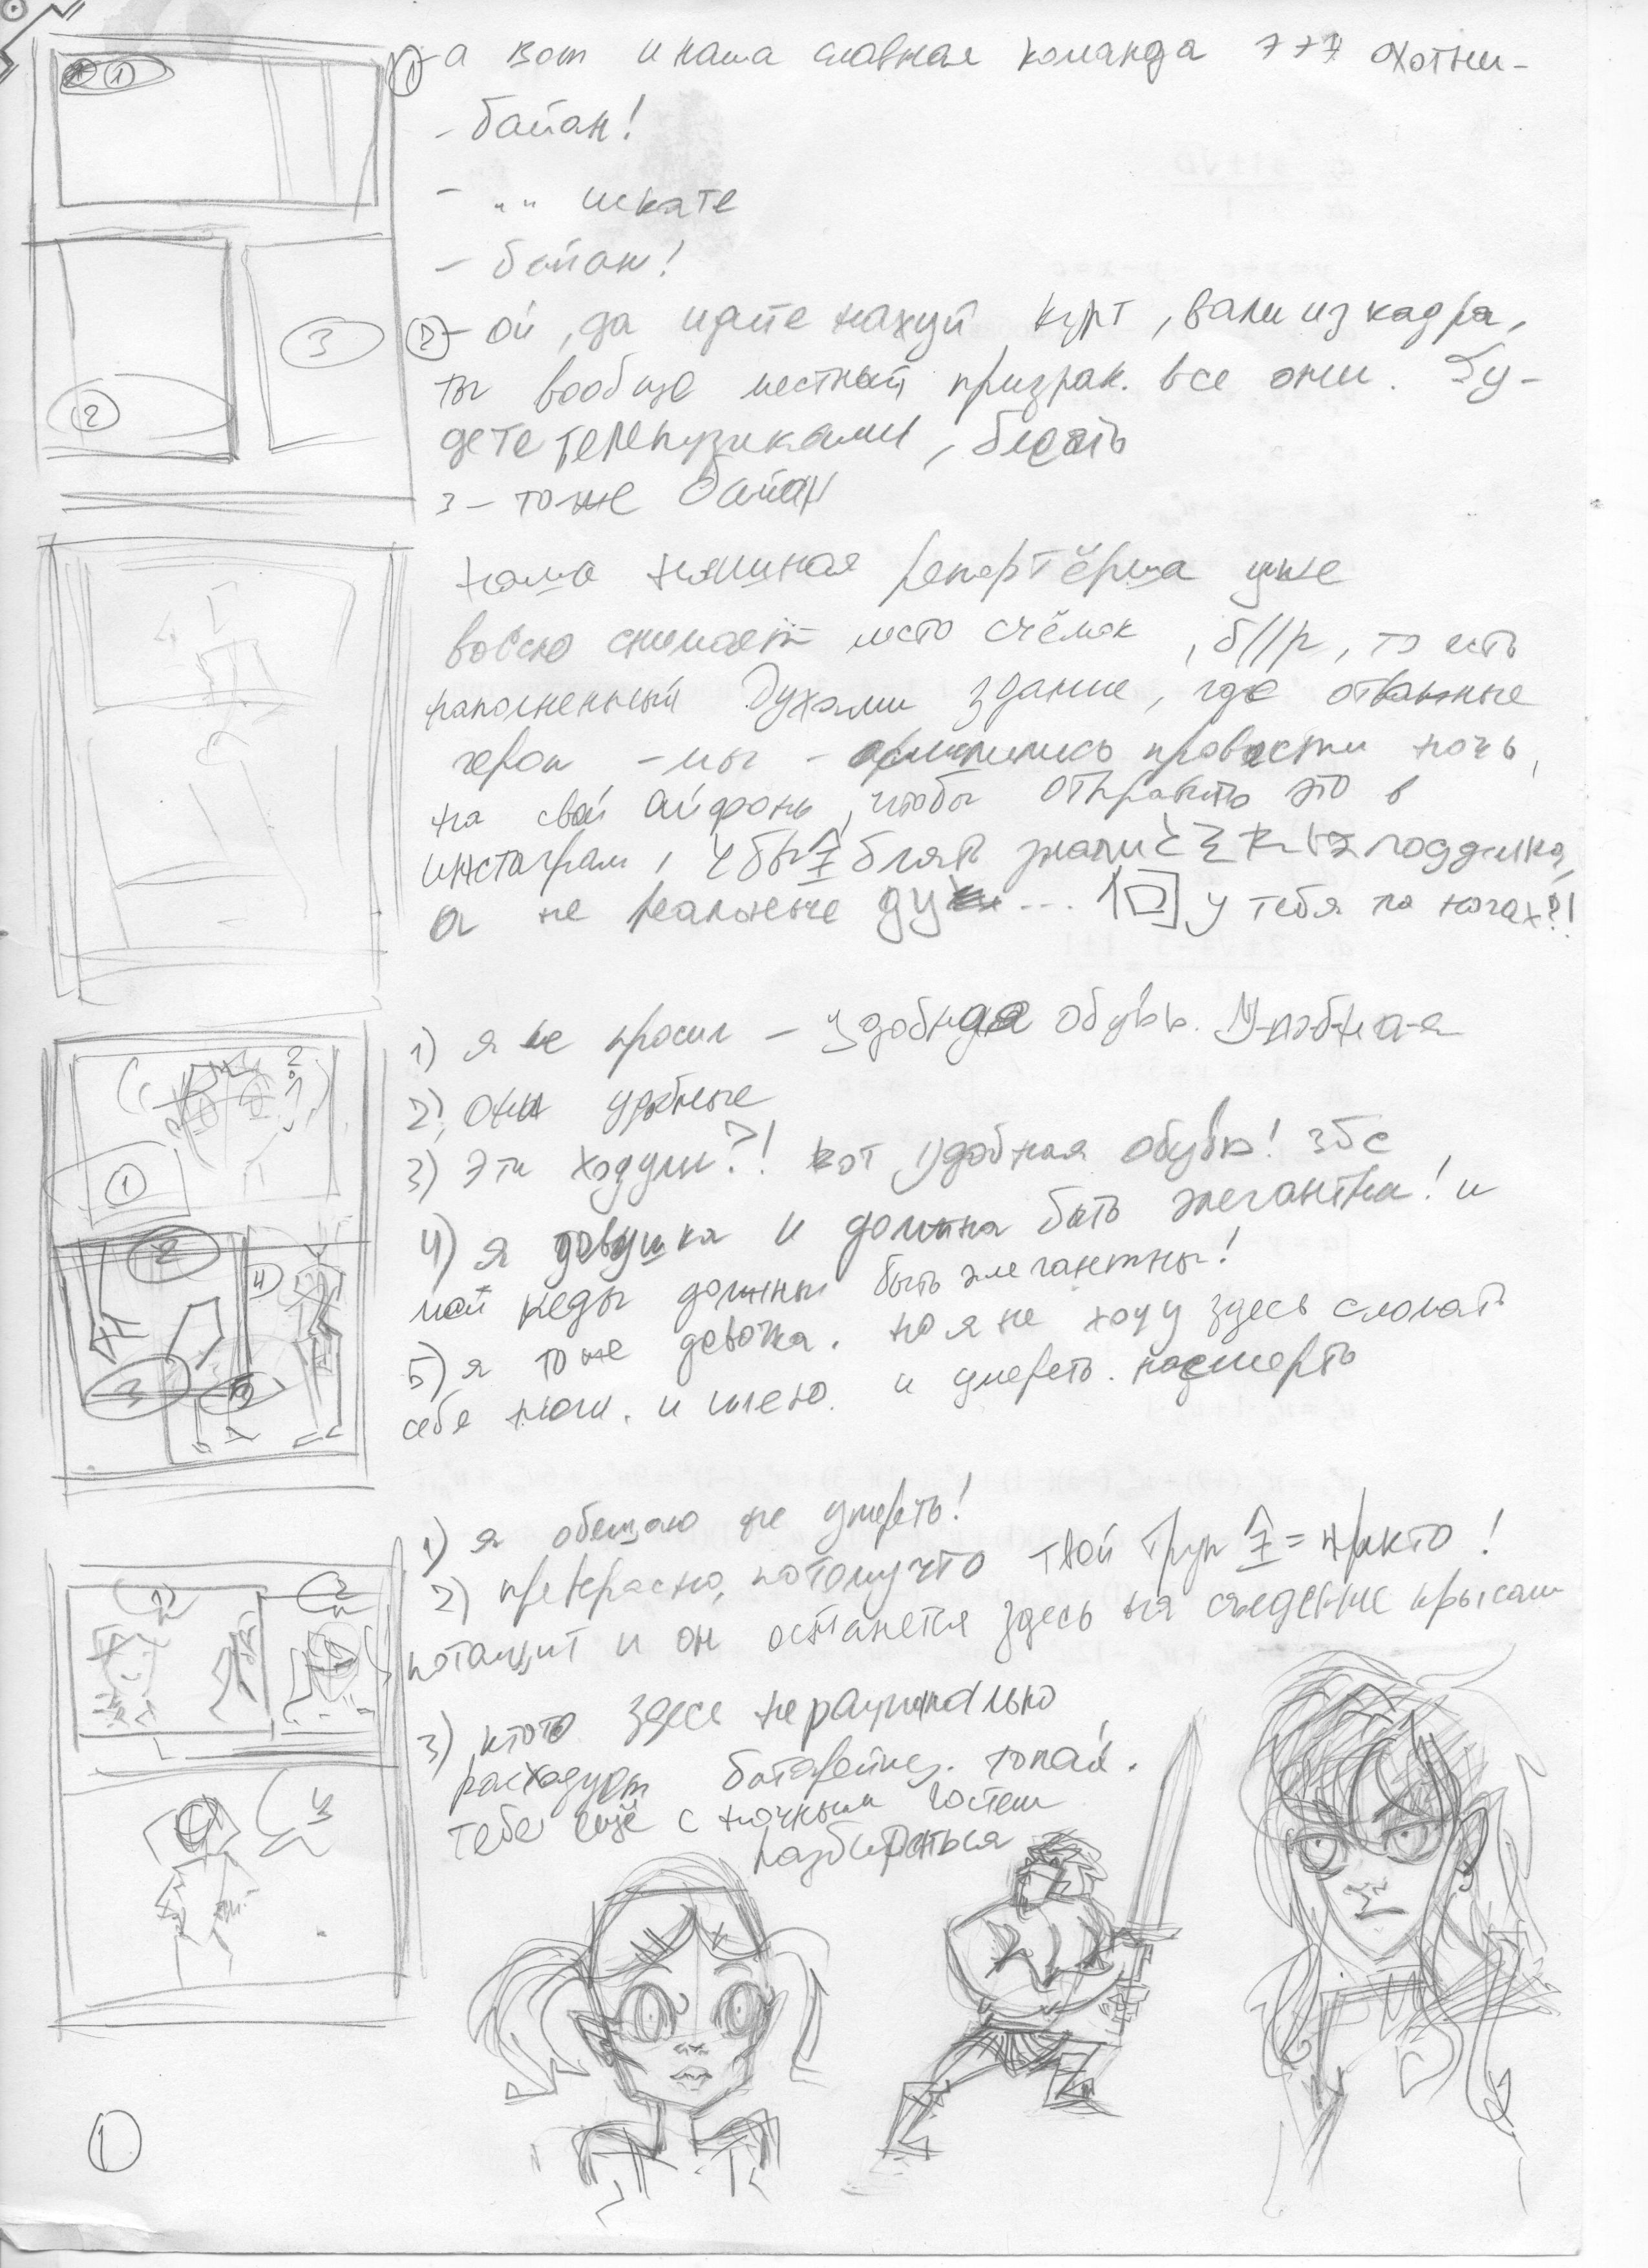 1 - а вот и наша славная команда +++ охотни-
- баян!
- " " искате
- баян!
2 - ой, да идите нахуй курт, вали из кадра,
ты вообще местный призрак. все они. Бу-
дете телепузиками, блеать
3 - тоже баян
наша няшная репортёрша уже
вовсю снимает место съёмок, б//р, то есть
наполненный Духами здание, где отважные
герои - мы - провести ночь,
на свой айфонь, чтобы отправить это в
инстаграм, чбы блять знали подделка,
а не реальные ду ... у тебя на ногах?!
1) я же просил - удобная обувь. У-доб-на-я
2) они удобные
3) Эти ходули?! вот удобная обувь! збс
4) я девушка и должна быть элегантна! и
мои кеды должны быть элегантны!
5) я тоже девочка. но я не хочу здесь сломать
себе ноги. и шею. и умереть. насмерть
1) я обещаю не умереть!
2) прекрасно, потому что твой труп = никто!
потащит и он останется здесь на съедение крысам
3) кто-то здесь нерационально
расходует батарейку. топай.
тебе ещё с ночным гостем
разбираться
1
2
3
1
2
3
4
5
1
2
3
1